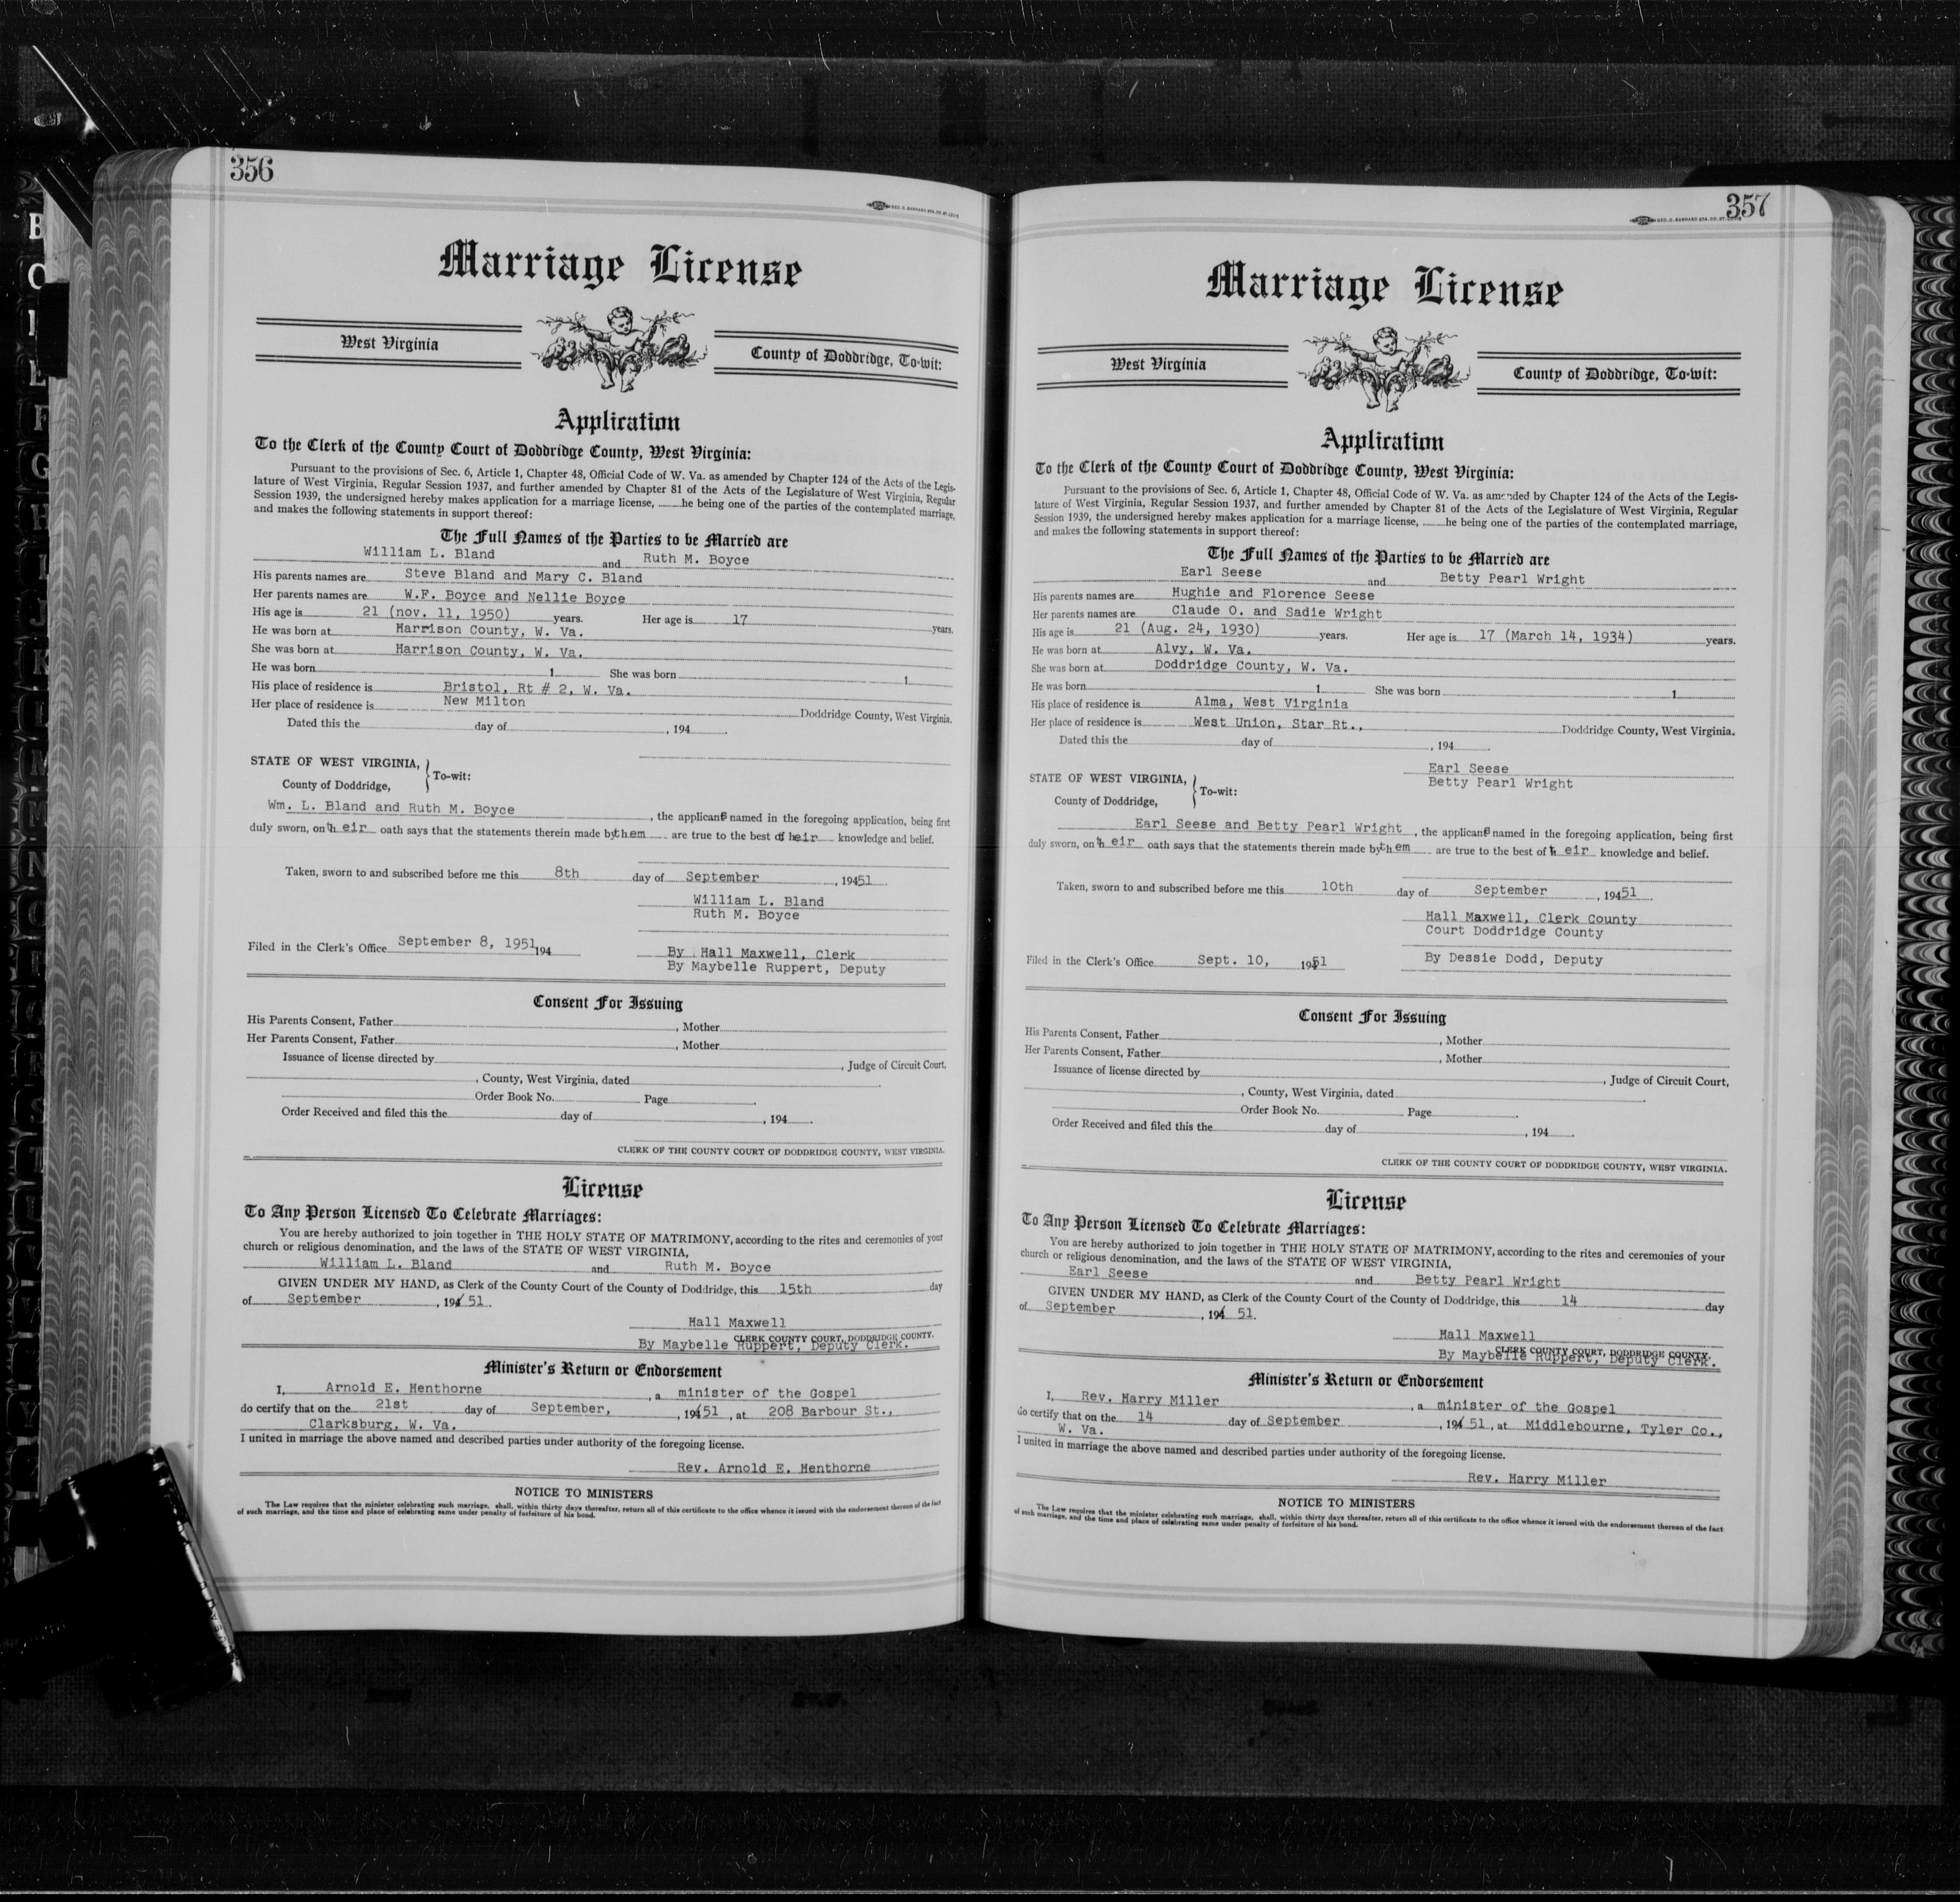 356
GEO. D. BARNARD STA. CO. ST. LOUIS
Marriage License
West Virginia
County of Doddridge, To-wit:
Application
To the Clerk of the County Court of Doddridge County, West Virginia:
Pursuant to the provisions of Sec. 6, Article 1, Chapter 48, Official Code of W. Va. as amended by Chapter 124 of the Acts of the Legis-
lature of West Virginia, Regular Session 1937, and further amended by Chapter 81 of the Acts of the Legislature of West Virginia, Regular
Session 1939, the undersigned hereby makes application for a marriage license, ____he being one of the parties of the contemplated marriage,
and makes the following statements in support thereof:
The Full Names of the Parties to be Married are
William L. Bland and Ruth M. Boyce
His parents names are Steve Bland and Mary C. Bland
Her parents names are W.F. Boyce and Nellie Boyce
His age is 21 (nov. 11, 1950) years. Her age is 17 years.
He was born at Harrison County, W. Va.
She was born at Harrison County, W. Va.
He was born 1 She was born 1
His place of residence is Bristol, Rt # 2, W. Va.
Her place of residence is New Milton Doddridge County, West Virginia.
Dated this the day of , 194 .
STATE OF WEST VIRGINIA,
County of Doddridge, To-wit:
Wm. L. Bland and Ruth M. Boyce, the applicants named in the foregoing application, being first
duly sworn, on their oath says that the statements therein made by them are true to the best of heir knowledge and belief.
Taken, sworn to and subscribed before me this 8th day of September, 19451
William L. Bland
Ruth M. Boyce
Filed in the Clerk's Office September 8, 1951, 194
By Hall Maxwell, Clerk
By Maybelle Ruppert, Deputy
Consent For Issuing
His Parents Consent, Father , Mother
Her Parents Consent, Father , Mother
Issuance of license directed by , Judge of Circuit Court,
, County, West Virginia, dated .
Order Book No. Page .
Order Received and filed this the day of , 194 .
CLERK OF THE COUNTY COURT OF DODDRIDGE COUNTY, WEST VIRGINIA.
License
To Any Person Licensed To Celebrate Marriages:
You are hereby authorized to join together in THE HOLY STATE OF MATRIMONY, according to the rites and ceremonies of your
church or religious denomination, and the laws of the STATE OF WEST VIRGINIA,
William L. Bland and Ruth M. Boyce
GIVEN UNDER MY HAND, as Clerk of the County Court of the County of Doddridge, this 15th day
of September, 194 51.
Hall Maxwell
CLERK COUNTY COURT, DODDRIDGE COUNTY.
By Maybelle Ruppert, Deputy Clerk.
Minister's Return or Endorsement
I, Arnold E. Henthorne, a minister of the Gospel
do certify that on the 21st day of September, , 19451, at 208 Barbour St.,
Clarksburg, W. Va.
I united in marriage the above named and described parties under authority of the foregoing license.
Rev. Arnold E. Henthorne
NOTICE TO MINISTERS
The Law requires that the minister celebrating such marriage, shall, within thirty days thereafter, return all of this certificate to the office whence it issued with the endorsement thereon of the fact
of such marriage, and the time and place of celebrating same under penalty of forfeiture of his bond.
357
GEO. D. BARNARD STA. CO. ST. LOUIS
Marriage License
West Virginia
County of Doddridge, To-wit:
Application
To the Clerk of the County Court of Doddridge County, West Virginia:
Pursuant to the provisions of Sec. 6, Article 1, Chapter 48, Official Code of W. Va. as amended by Chapter 124 of the Acts of the Legis-
lature of West Virginia, Regular Session 1937, and further amended by Chapter 81 of the Acts of the Legislature of West Virginia, Regular
Session 1939, the undersigned hereby makes application for a marriage license, ____he being one of the parties of the contemplated marriage,
and makes the following statements in support thereof:
The Full Names of the Parties to be Married are
Earl Seese and Betty Pearl Wright
His parents names are Hughie and Florence Seese
Her parents names are Claude O. and Sadie Wright
His age is 21 (Aug. 24, 1930) years. Her age is 17 (March 14, 1934) years.
He was born at Alvy, W. Va.
She was born at Doddridge County, W. Va.
He was born 1 She was born 1
His place of residence is Alma, West Virginia
Her place of residence is West Union, Star Rt., Doddridge County, West Virginia.
Dated this the day of , 194 .
Earl Seese
Betty Pearl Wright
STATE OF WEST VIRGINIA,
County of Doddridge, To-wit:
Earl Seese and Betty Pearl Wright, the applicants named in the foregoing application, being first
duly sworn, on their oath says that the statements therein made by them are true to the best of their knowledge and belief.
Taken, sworn to and subscribed before me this 10th day of September, 19451.
Hall Maxwell, Clerk County
Court Doddridge County
Filed in the Clerk's Office Sept. 10, 1951
By Dessie Dodd, Deputy
Consent For Issuing
His Parents Consent, Father , Mother
Her Parents Consent, Father , Mother
Issuance of license directed by , Judge of Circuit Court,
, County, West Virginia, dated .
Order Book No. Page .
Order Received and filed this the day of , 194 .
CLERK OF THE COUNTY COURT OF DODDRIDGE COUNTY, WEST VIRGINIA.
License
To Any Person Licensed To Celebrate Marriages:
You are hereby authorized to join together in THE HOLY STATE OF MATRIMONY, according to the rites and ceremonies of your
church or religious denomination, and the laws of the STATE OF WEST VIRGINIA,
Earl Seese and Betty Pearl Wright
GIVEN UNDER MY HAND, as Clerk of the County Court of the County of Doddridge, this 14 day
of September, 194 51.
Hall Maxwell
CLERK COUNTY COURT, DODDRIDGE COUNTY.
By Maybelle Ruppert, Deputy Clerk.
Minister's Return or Endorsement
I, Rev. Harry Miller, a minister of the Gospel
do certify that on the 14 day of September, 194 51, at Middlebourne, Tyler Co.,
W. Va.
I united in marriage the above named and described parties under authority of the foregoing license.
Rev. Harry Miller
NOTICE TO MINISTERS
The Law requires that the minister celebrating such marriage, shall, within thirty days thereafter, return all of this certificate to the office whence it issued with the endorsement thereon of the fact
of such marriage, and the time and place of celebrating same under penalty of forfeiture of his bond.